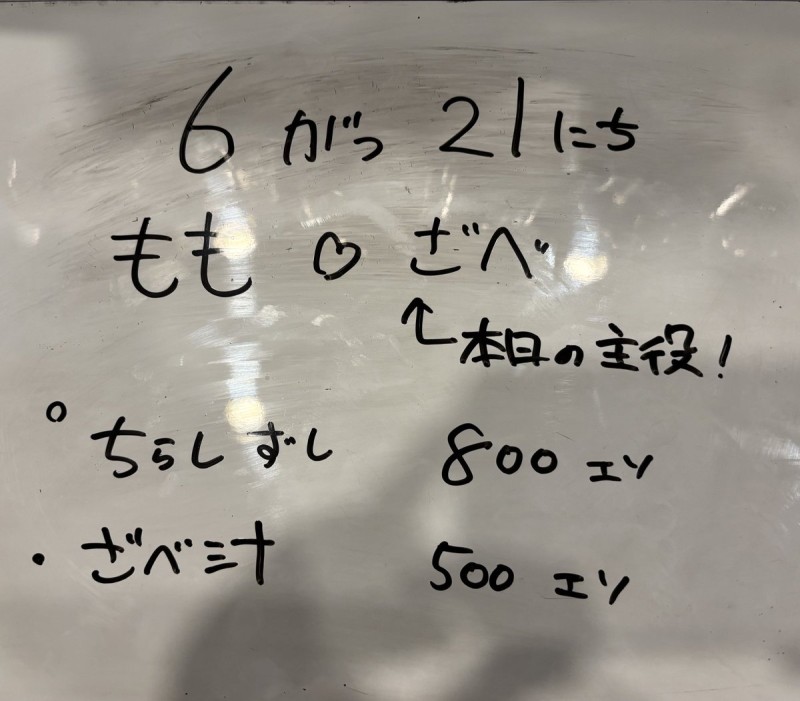 6がつ21にち
もも♡ざべ
↖本日の主役!
°ちらしずし 800エン
・ざべ汁 500エン